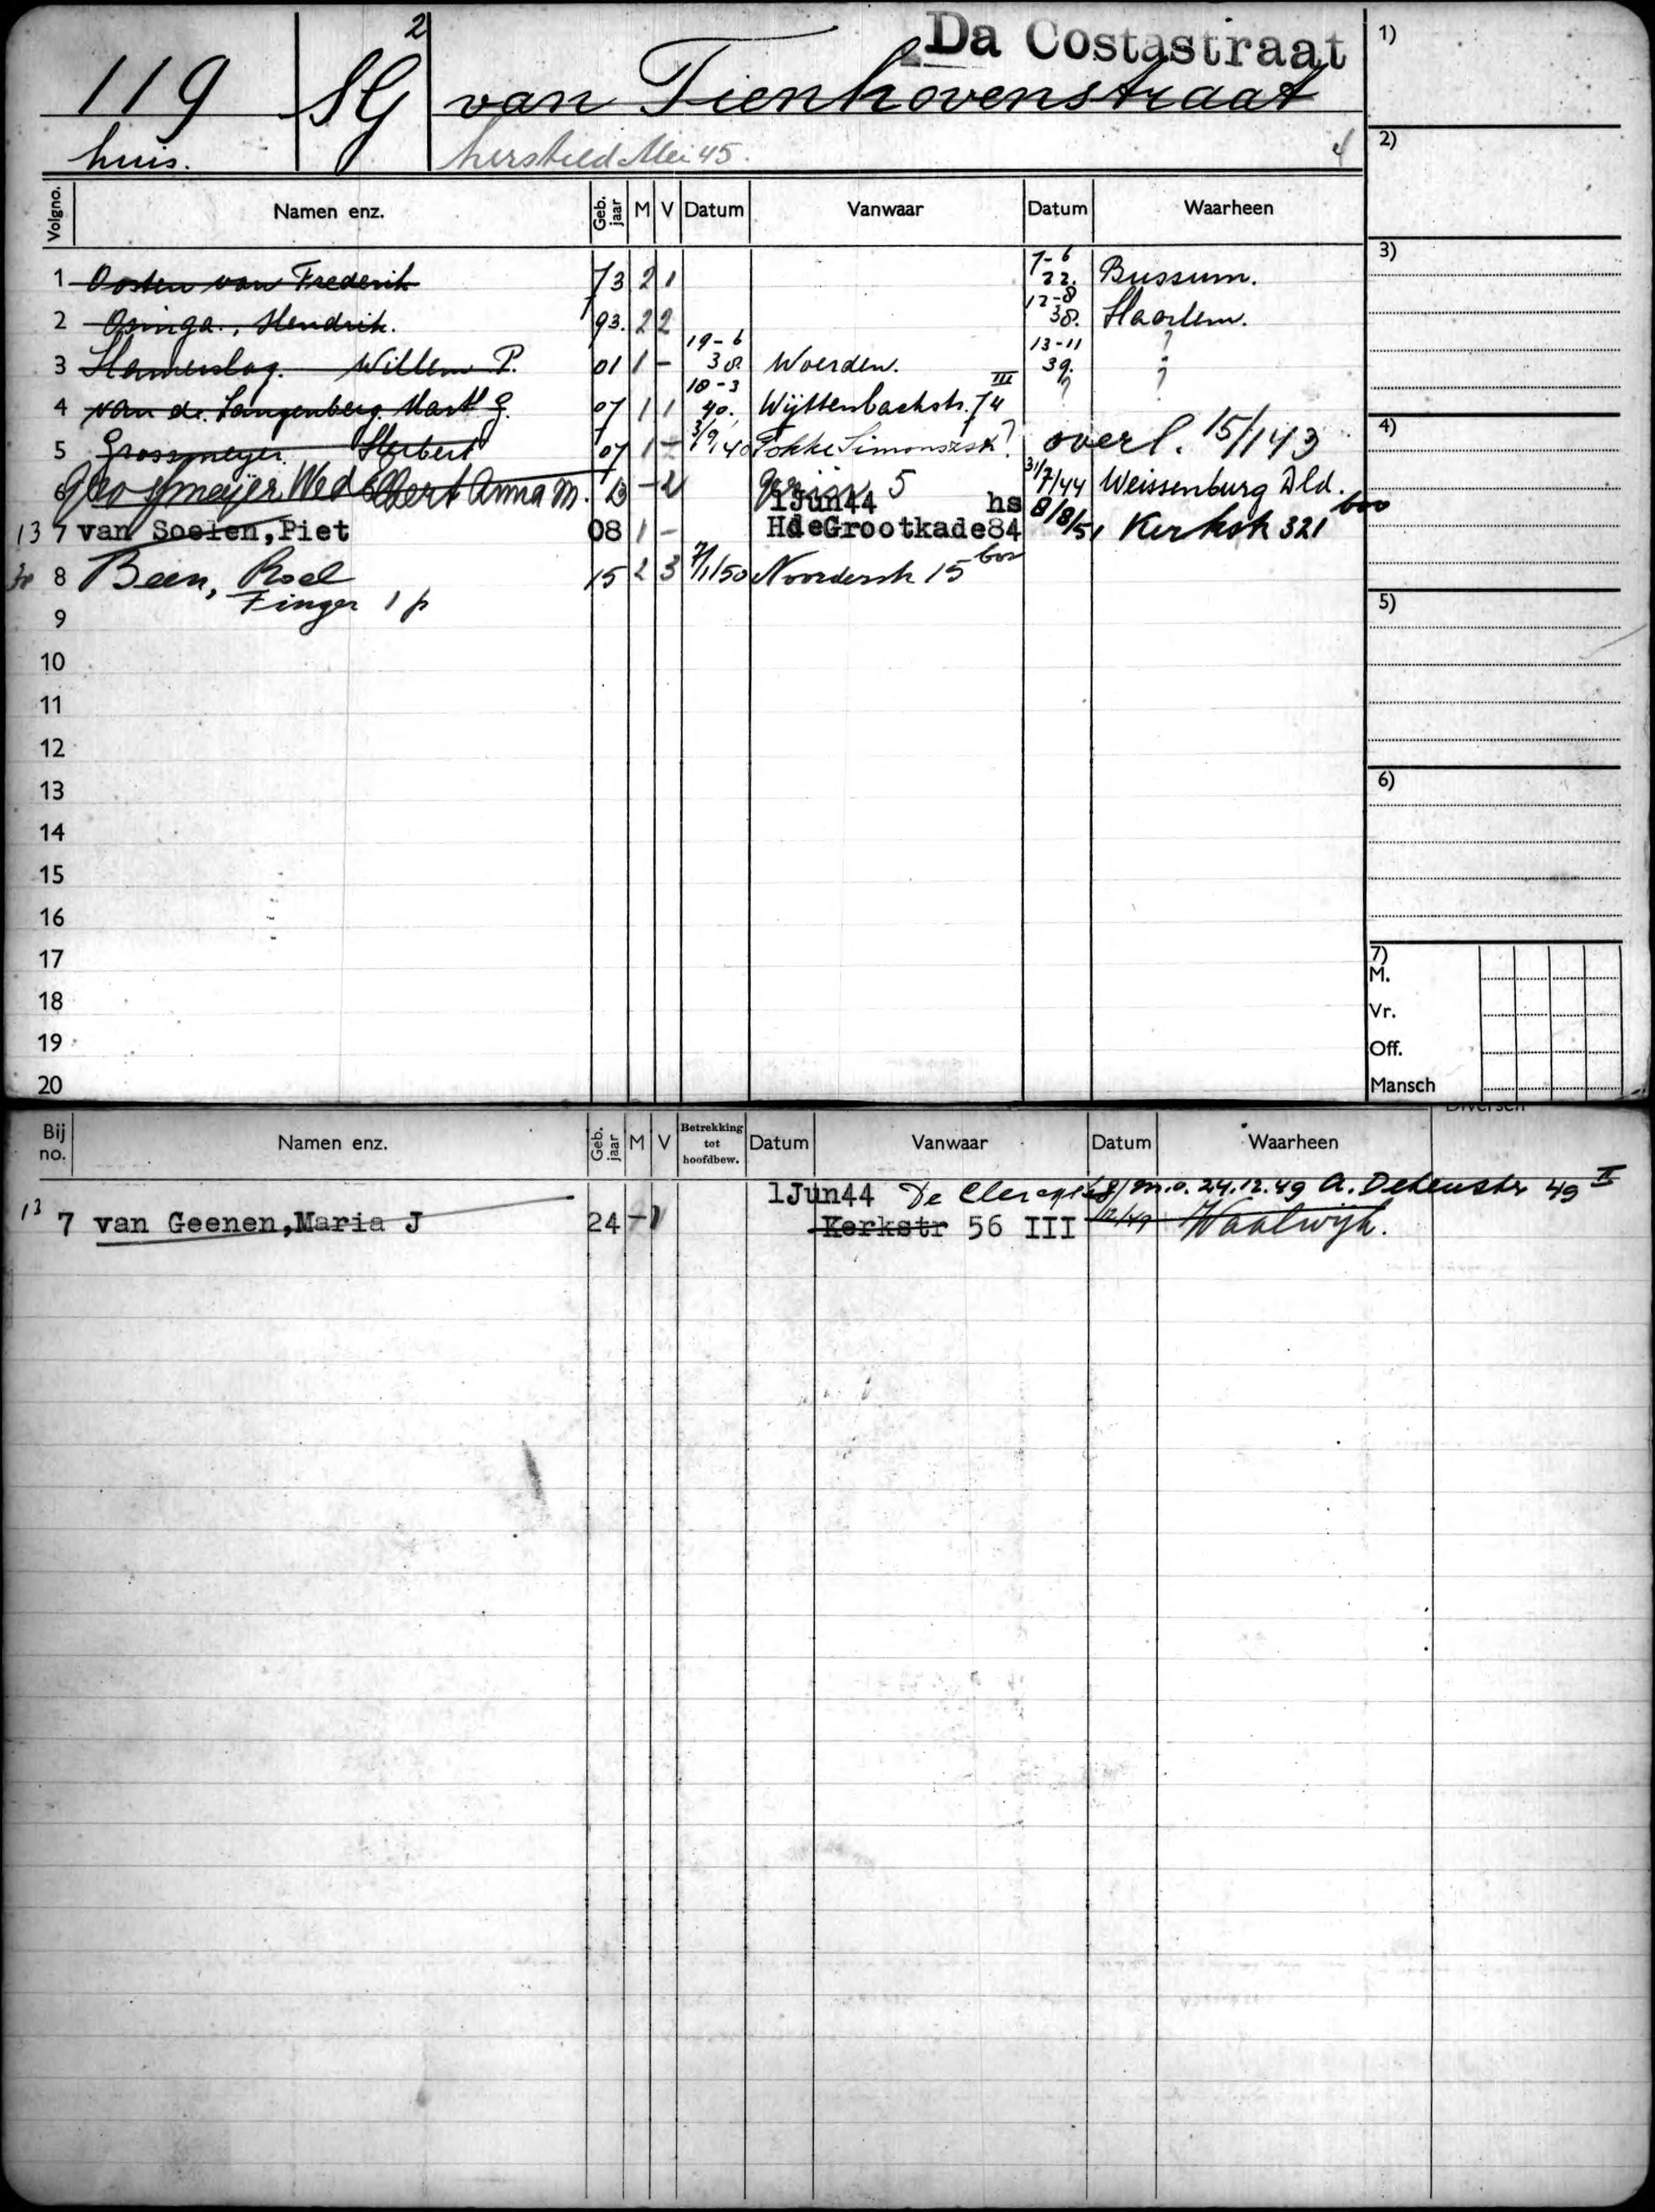 Da Costastraat
119 SG 2 van Tienhovenstraat
huis. hersteld Mei 45.
1)
2)
3)
4)
5)
6)
7)
M.
Vr.
Off.
Mansch
Volgno. Namen enz. Geb. jaar M V Datum Vanwaar Datum Waarheen
1 Oosten van Frederik 73 2 1 7-6 22. Bussum.
2 Osinga, Hendrik. 93. 2 2 12-8 38. Haarlem.
3 Hamerslag. Willem P. 01 1 - 19-6 38. Woerden. 13-11 39. ?
4 van de Langenberg Mart G. 07 1 1 18-3 40. Wyttenbachstr. 74 III ? ?
5 Grossmeyer Herbert 07 1 - 3/9/40 Fokke Simonszstr ? overl. 15/1 43
6 Grossmeijer Wed Anna M. 13 - 5 31/7/44 Weissenburg Dld.
13 7 van Soelen, Piet 08 1 - 1Jun44 hs HdeGrootkade84 8/8/51 Kerkstr 321 bov
8 Been, Roel 15 2 3 7/1/50 Noorderstr 15 bov
Finger 1 p
9
10
11
12
13
14
15
16
17
18
19
20
Bij no. Namen enz. Geb. jaar M V Betrekking tot hoofdbew. Datum Vanwaar Datum Waarheen Diversen
1Jun44 De m.o. 24.12.49 A. Dekenstr 49 II
13 7 van Geenen, Maria J 24 - 1 Kerkstr 56 III /12/49 Waalwijk.